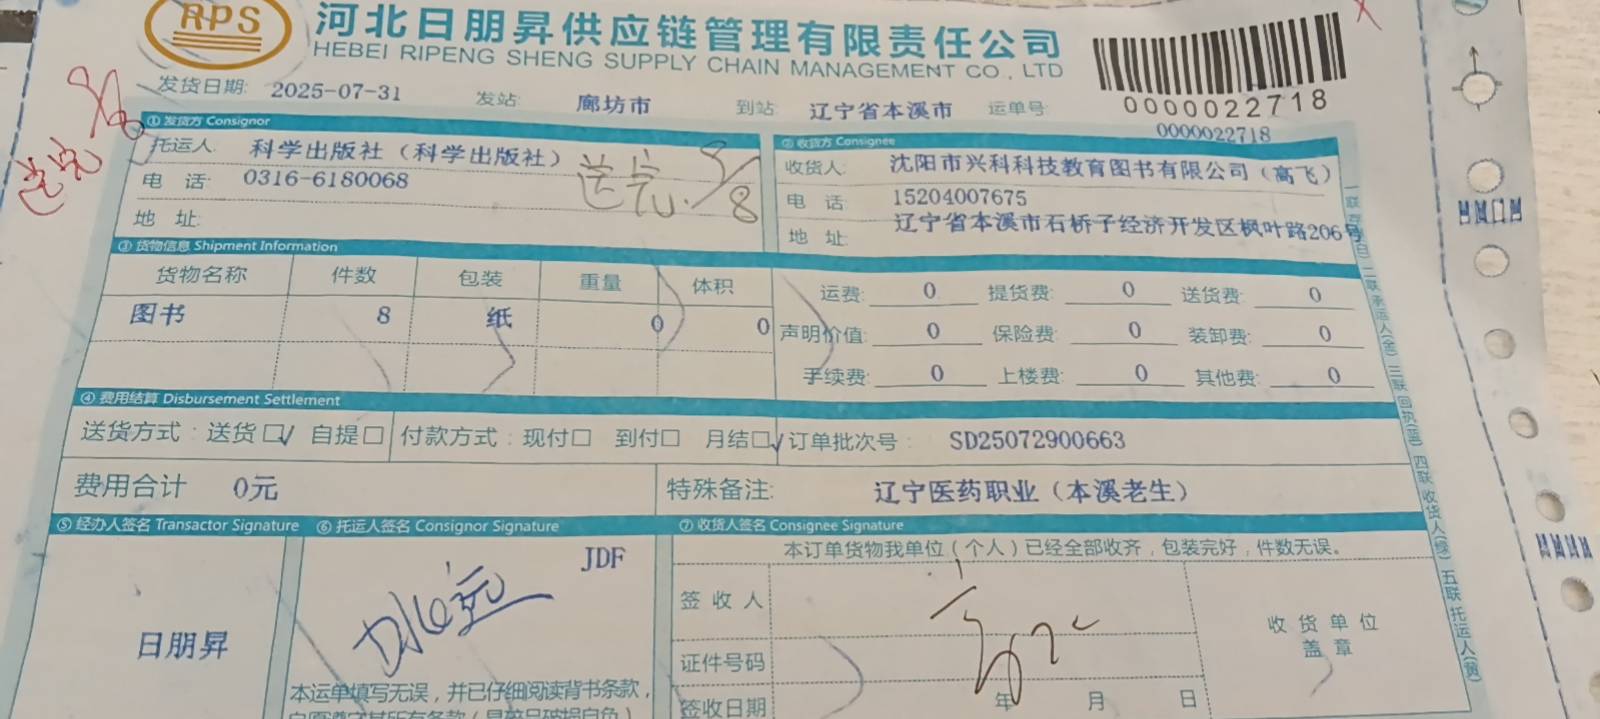 RPS
河北日朋昇供应链管理有限责任公司
HEBEI RIPENG SHENG SUPPLY CHAIN MANAGEMENT CO., LTD
0000022718
发货日期: 2025-07-31 发站: 廊坊市 到站: 辽宁省本溪市 运单号: 0000022718
①发货方 Consignor
托运人: 科学出版社（科学出版社）
电 话: 0316-6180068
地 址:
送完. 9/8
送完 9/8
②收货方 Consignee
收货人: 沈阳市兴科科技教育图书有限公司（高飞）
电 话: 15204007675
地 址: 辽宁省本溪市石桥子经济开发区枫叶路206号
③货物信息 Shipment Information
货物名称 件数 包装 重量 体积
图书 8 纸 0 0
运费: 0 提货费: 0 送货费: 0
声明价值: 0 保险费: 0 装卸费: 0
手续费: 0 上楼费: 0 其他费: 0
④费用结算 Disbursement Settlement
送货方式: 送货□√ 自提□ 付款方式: 现付□ 到付□ 月结□√ 订单批次号: SD25072900663
费用合计 0元 特殊备注: 辽宁医药职业（本溪老生）
⑤经办人签名 Transactor Signature ⑥托运人签名 Consignor Signature ⑦收货人签名 Consignee Signature
日朋昇
JDF
本运单填写无误，并已仔细阅读背书条款，
自愿遵守其所有条款（易碎品破损自负）
本订单货物我单位（个人）已经全部收齐，包装完好，件数无误。
签收人
证件号码
签收日期 年 月 日
收货单位
盖章
二联承运人(金) 三联回执(蓝) 四联收货人(绿) 五联托运人(黄)